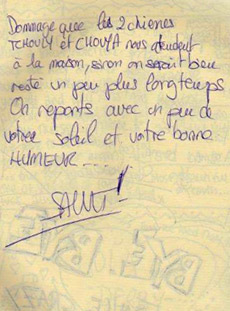 Dommage que les 2 chiènes
TCHOULY et CHOUYA nous attendent
à la maison, sinon on serait bien
resté un peu plus longtemps
On reparts avec un peu de
votre soleil et votre bonne
HUMEUR.......
SALUT!
BYE BYE